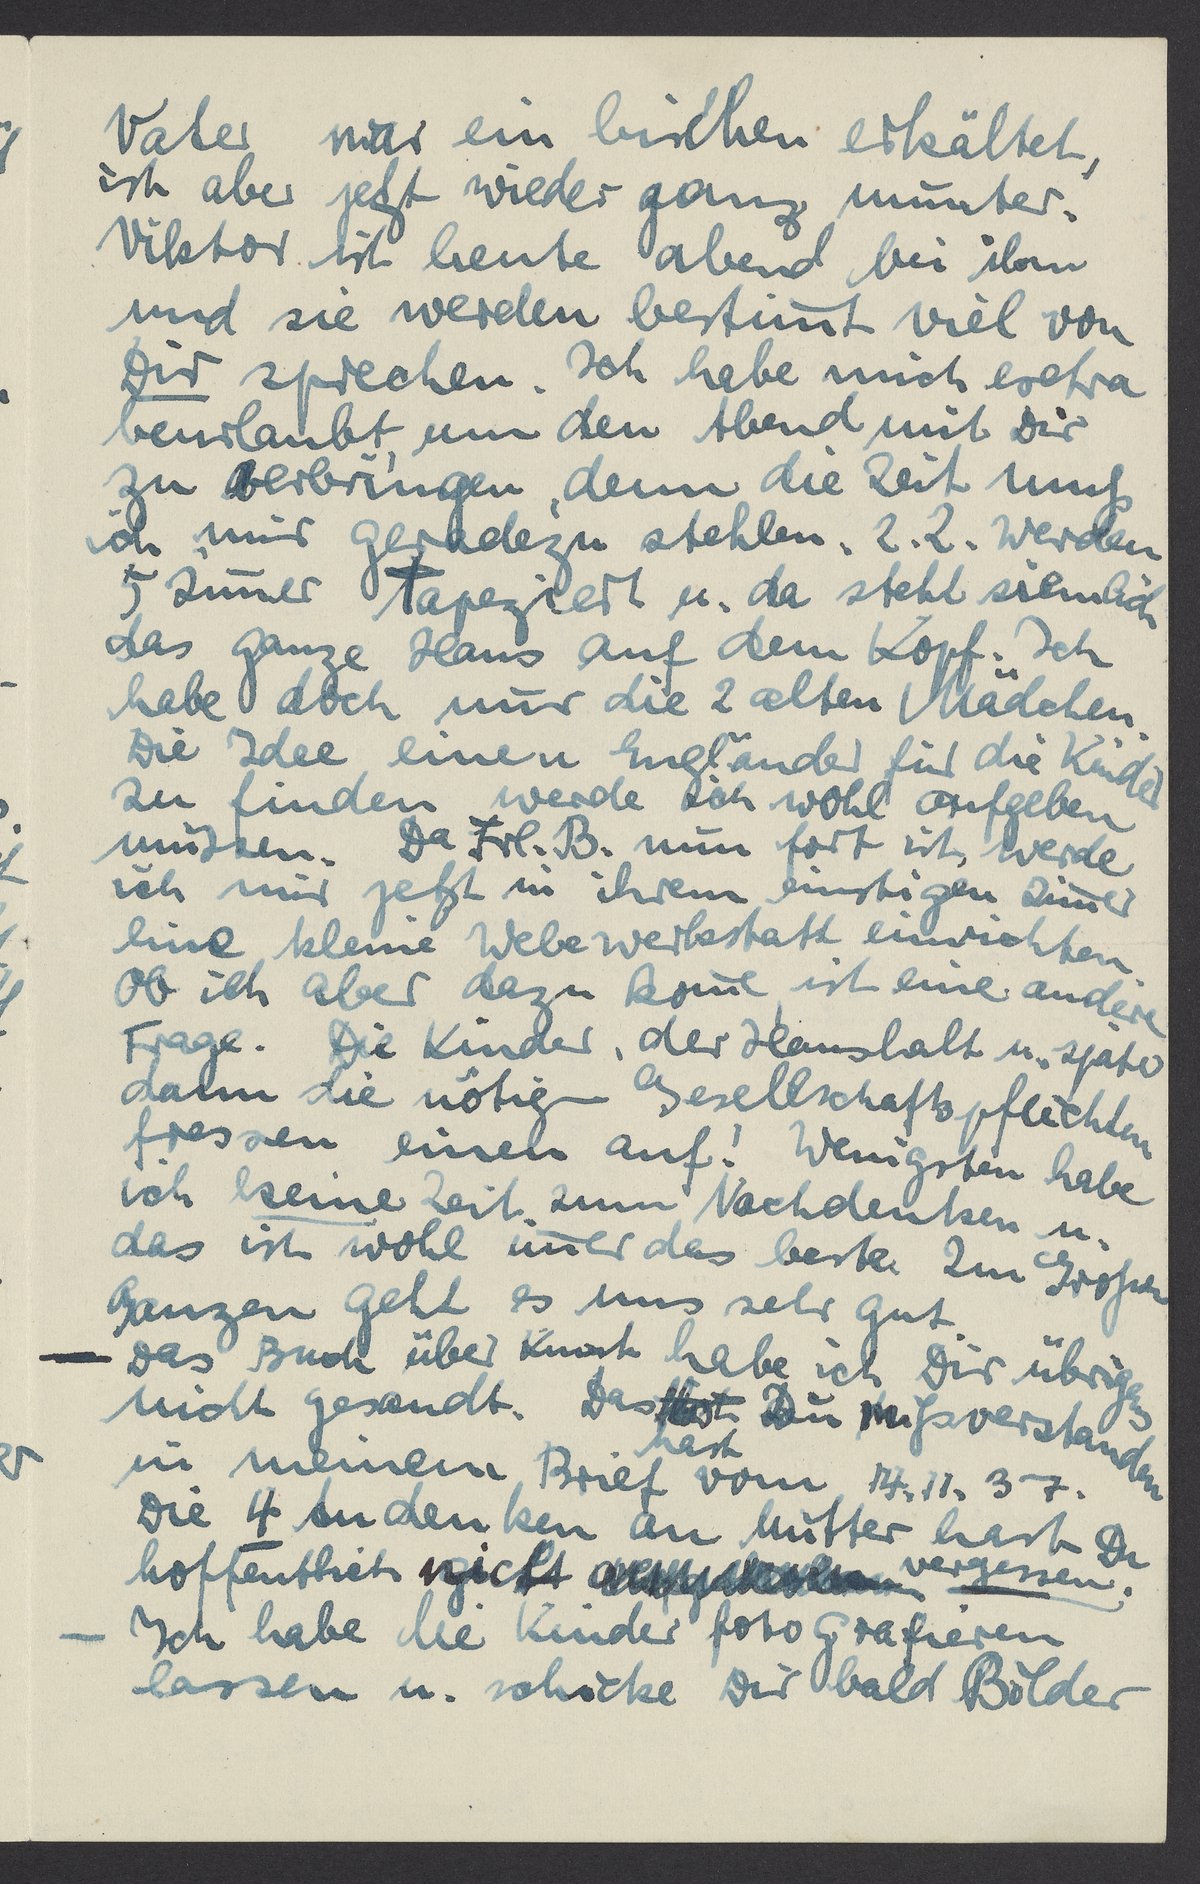 Vater war ein bischen erkältet,
ist aber jetzt wieder ganz munter.
Viktor ist heute abend bei ihm
und sie werden bestim̄t viel von
Dir sprechen. Ich habe mich extra
beurlaubt, um den Abend mit Dir
zu verbringen, denn die Zeit muß
ich mir geradezu stehlen. Z.Z. werden
5 Zim̄er tapeziert u. da steht ziemlich
das ganze Haus auf dem Kopf. Ich
habe doch nur die 2 alten Mädchen.
Die Idee einen Engländer für die Kinder
zu finden werde ich wohl aufgeben
müssen. Da Frl. B. nun fort ist, werde
ich mir jetzt in ihrem einstigen Zim̄er
eine kleine Webewerkstatt einrichten.
Ob ich aber dazu kom̄e, ist eine andere
Frage. Die Kinder, der Haushalt u. später
dann die nötig Gesellschaftspflichten
fressen einen auf! Wenigsten habe
ich keine Zeit zum Nachdenken u.
das ist wohl im̄er das beste. Im Großen
Ganzen geht es uns sehr gut.
— Das Buch über Kunst habe ich Dir übrigens
nicht gesandt. Das Du mißverstanden
hast
in meinem Brief vom 14.11.37.
Die 4 Andenken an Mutter hast Du
hoffentlich nicht vergessen.
— Ich habe die Kinder fotografieren
lassen u. schicke Dir bald Bilder